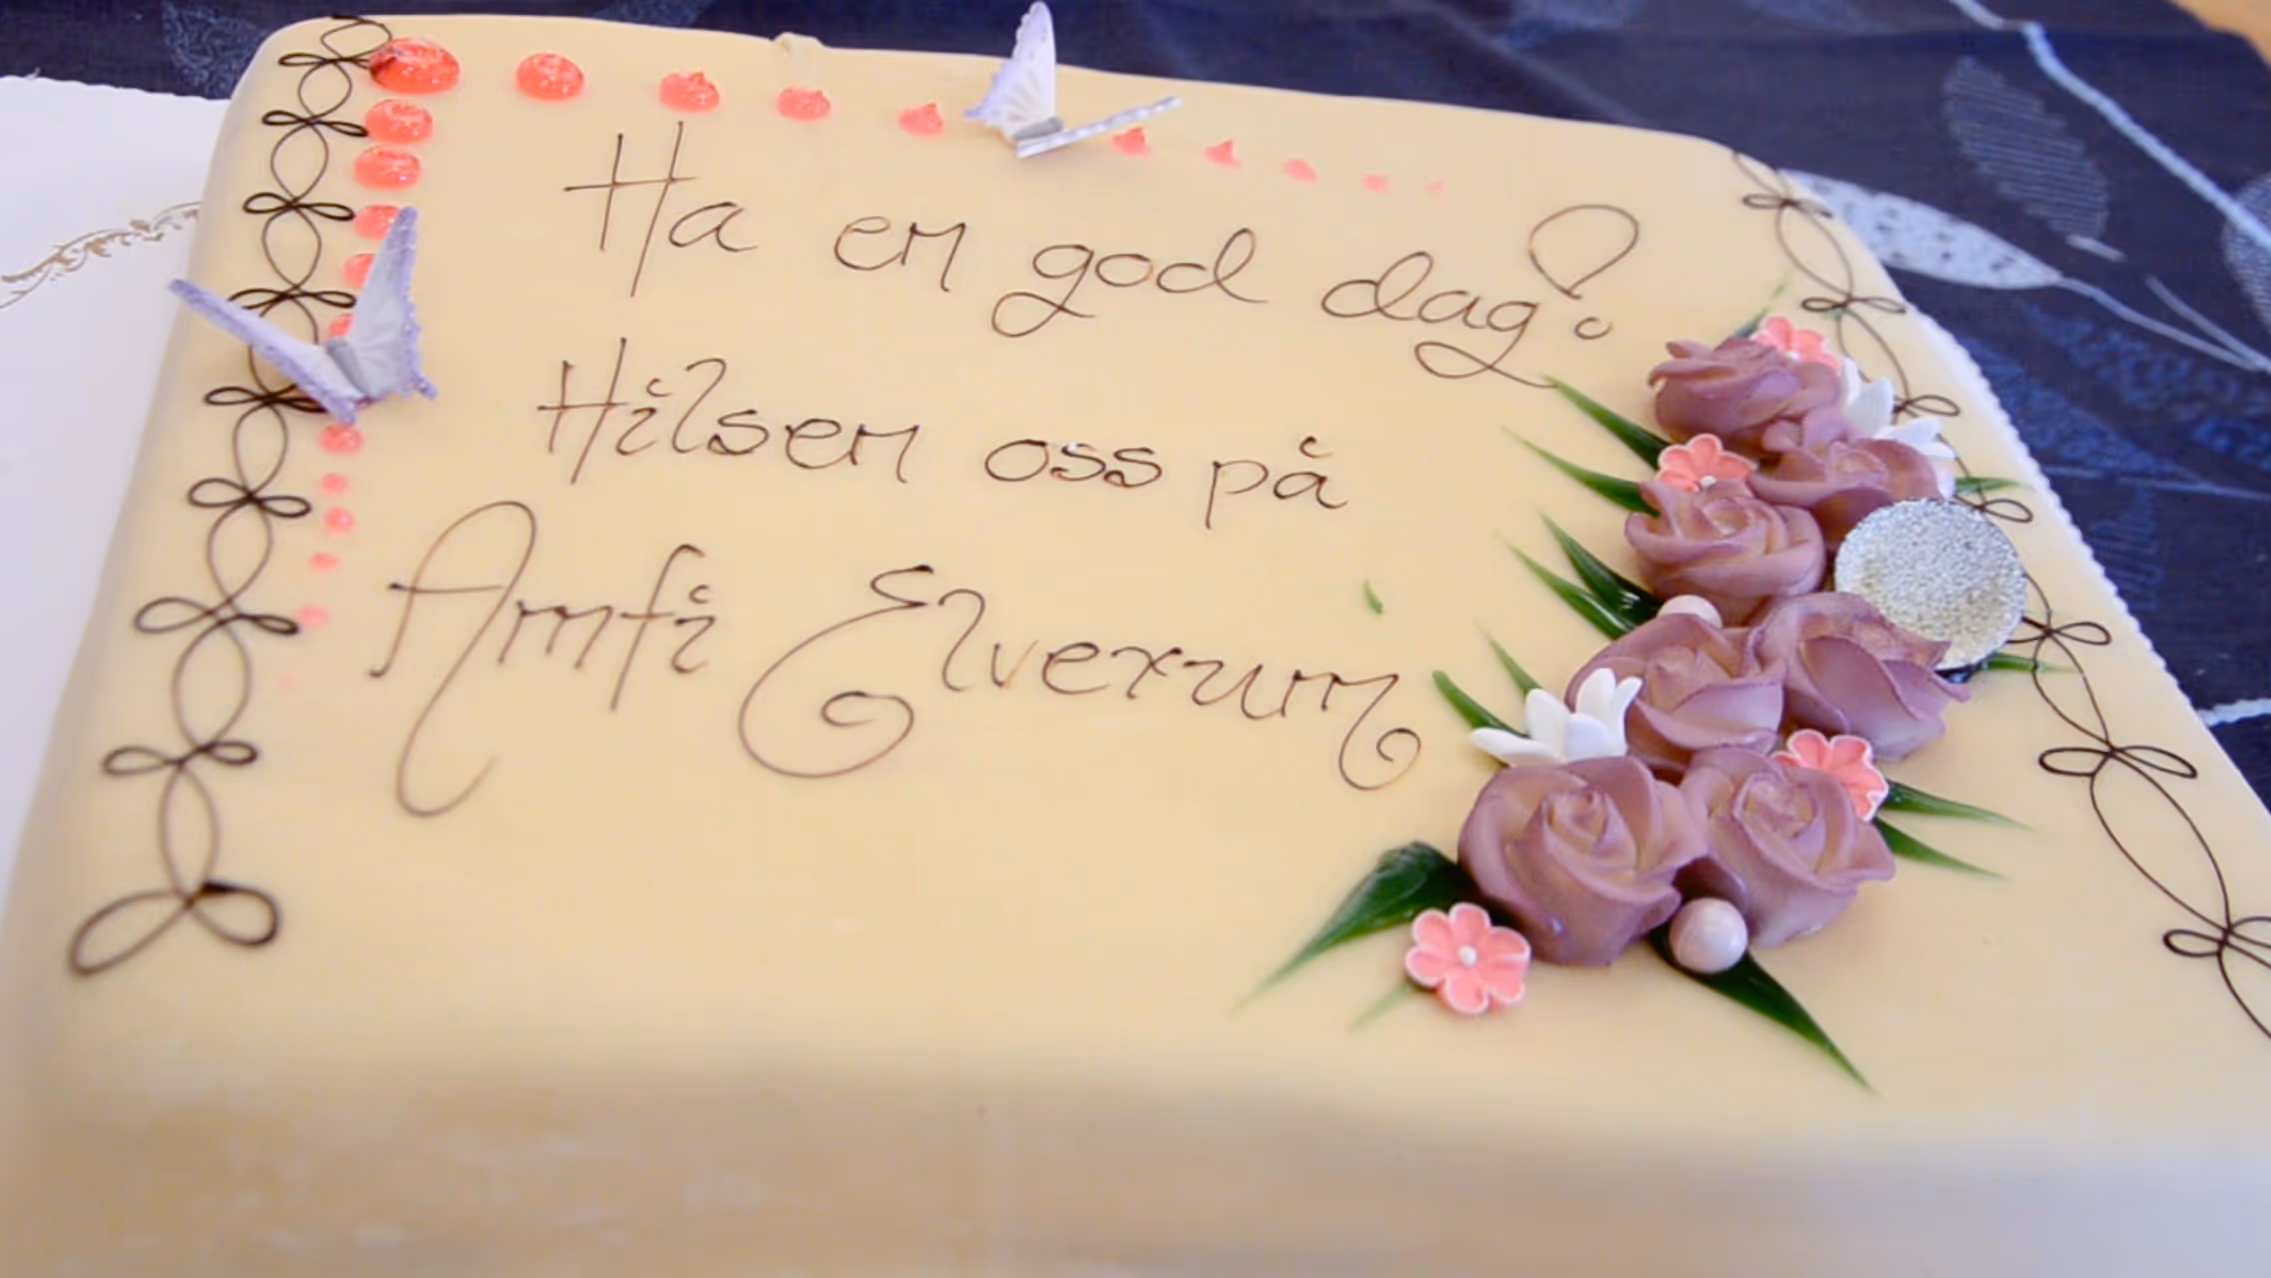 Ha en god dag!
Hilsen oss på
Amfi Elverum